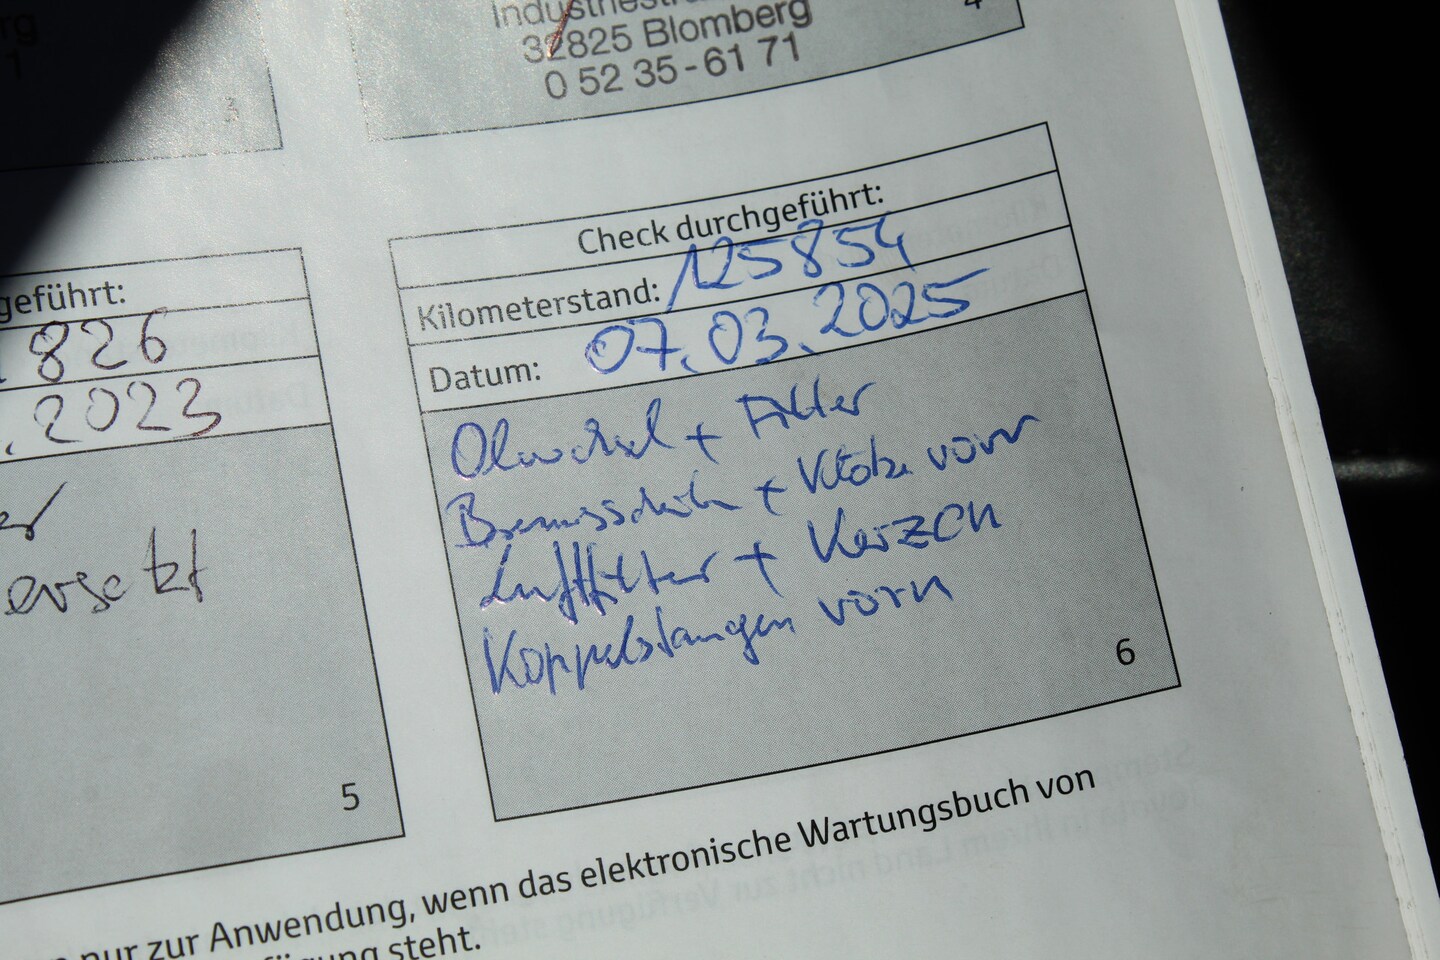 rg
1
3
Industriestr
32825 Blomberg
0 52 35 - 61 71
4
geführt:
826
.2023
er
ersetzt
5
Check durchgeführt:
Kilometerstand: 125854
Datum: 07.03.2025
Ölwechsel + Filter
Bremsscheiben + Klötze vorn
Luftfilter + Kerzen
Koppelstangen vorn
6
nur zur Anwendung, wenn das elektronische Wartungsbuch von
fügung steht.